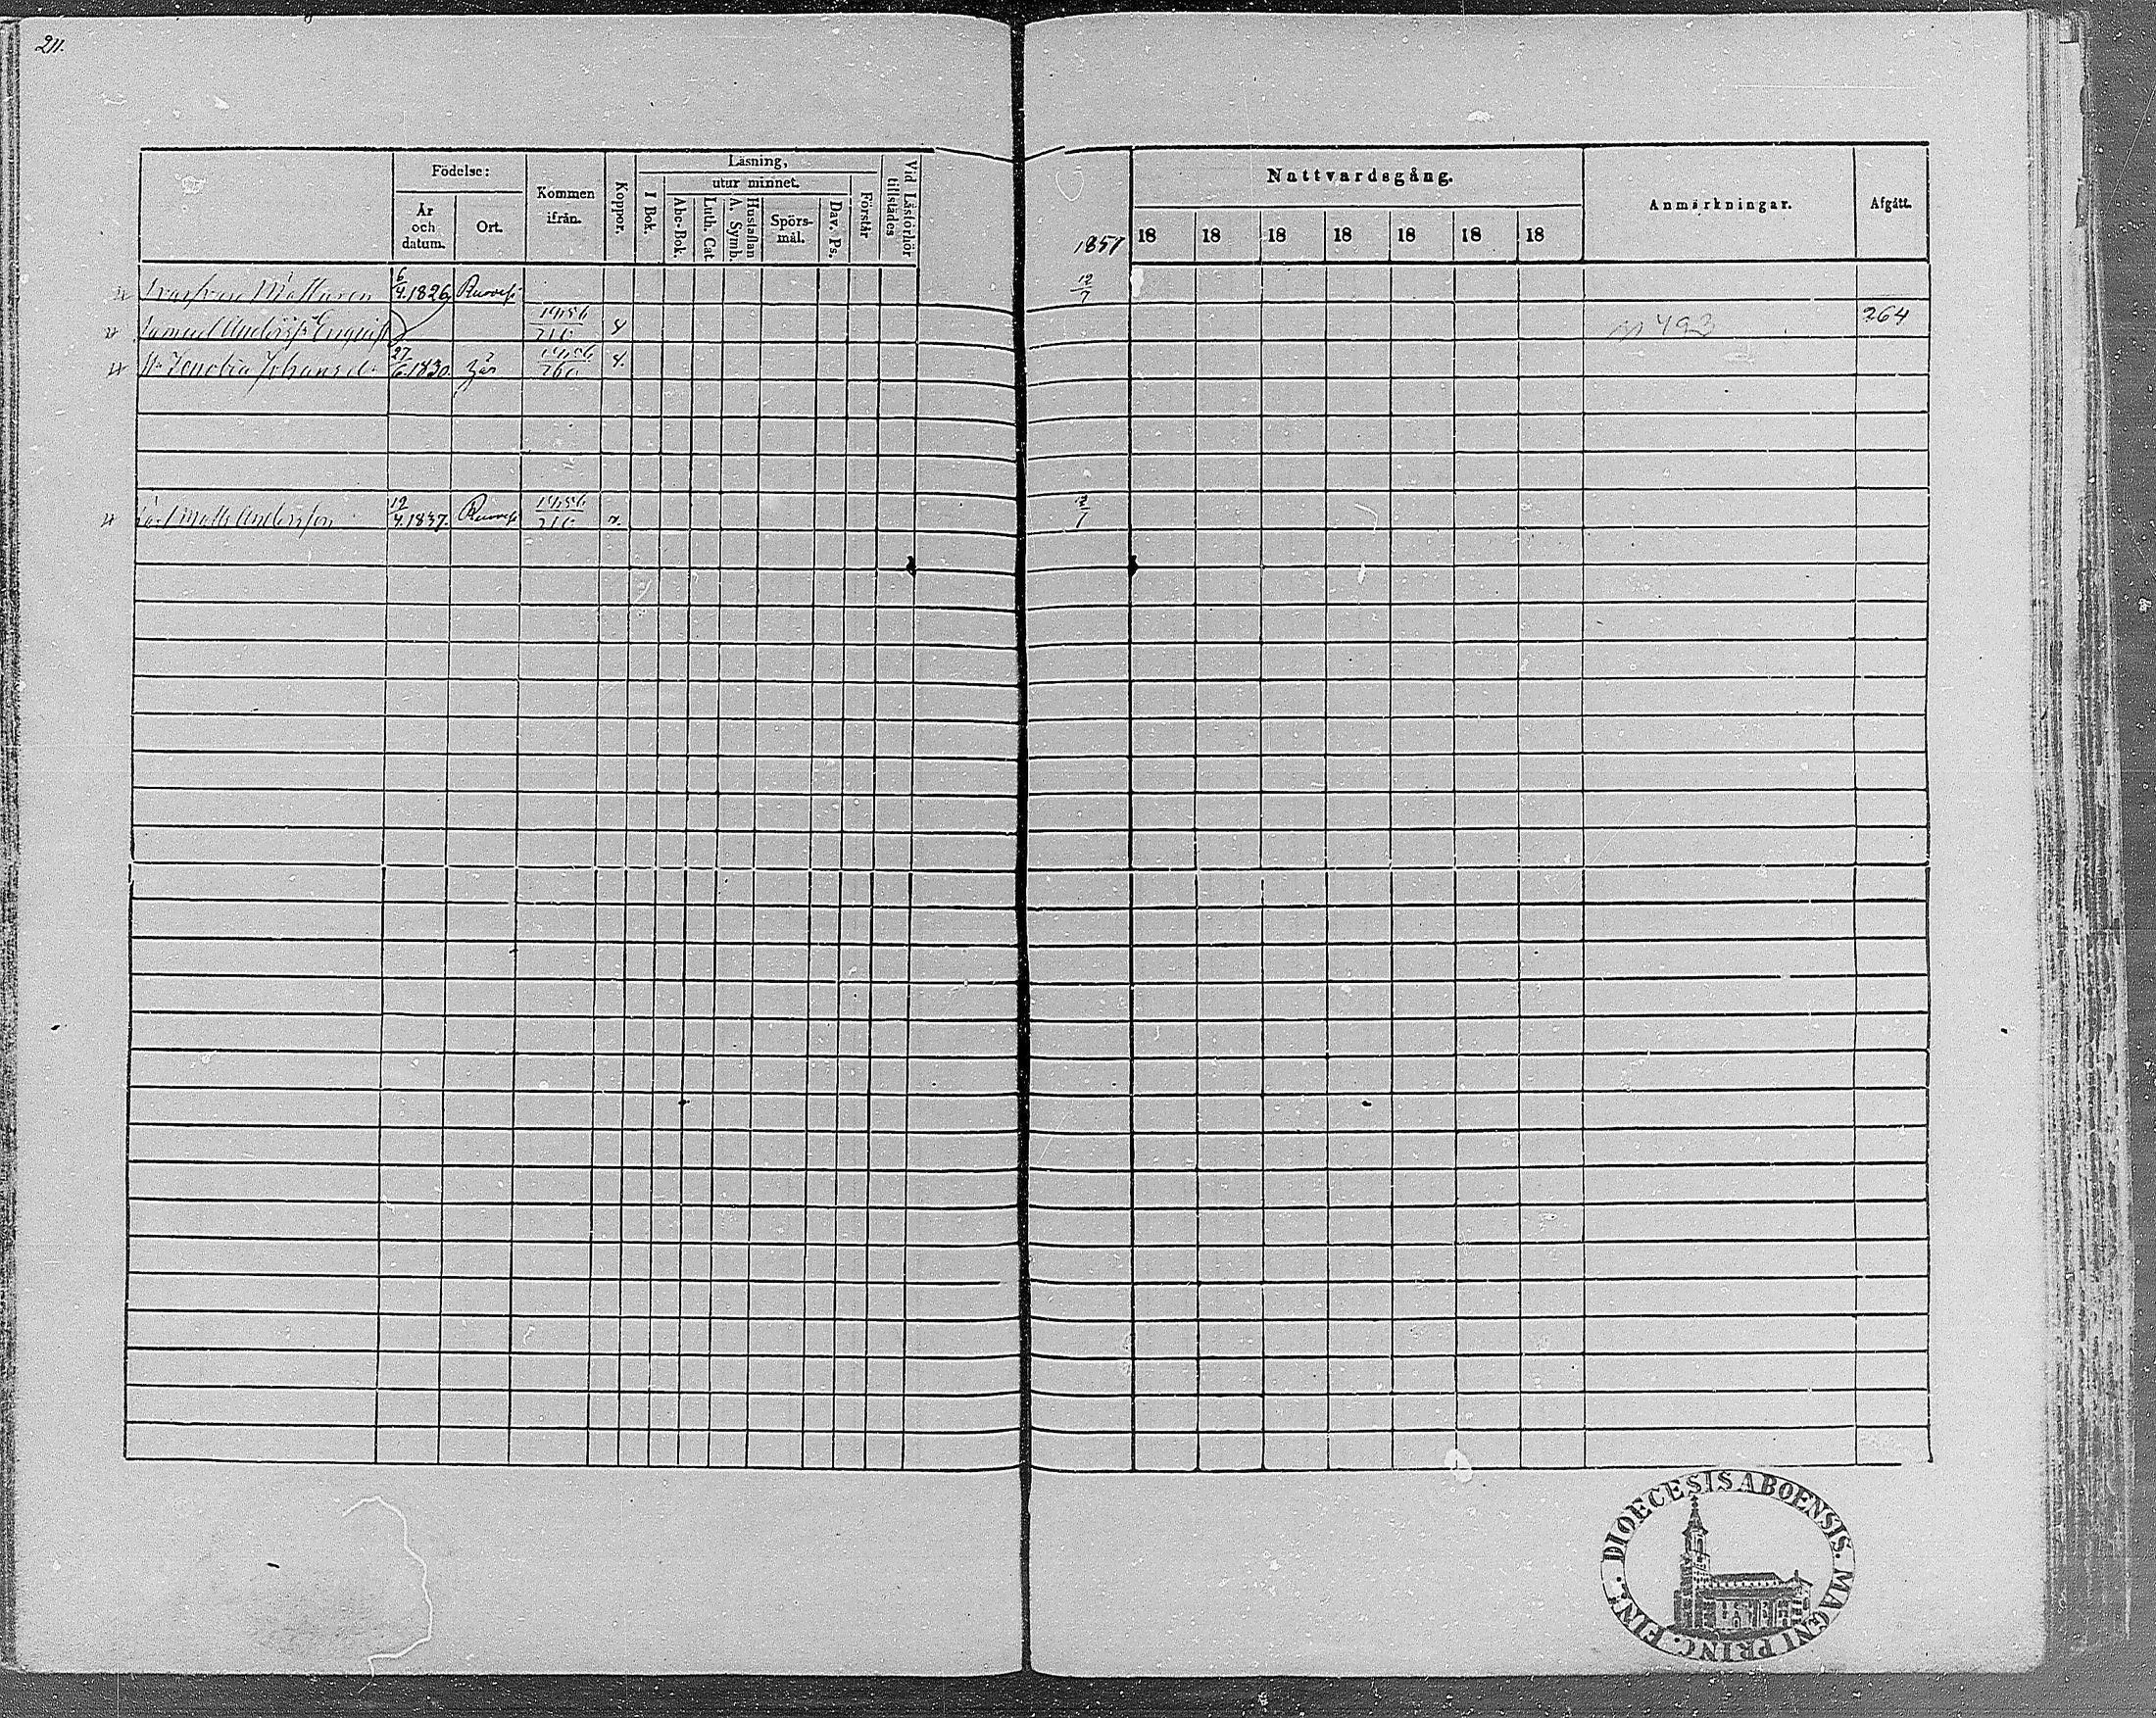 211.
Födelse:
År och datum.
Ort.
Kommen ifrån.
Koppor.
Läsning,
I Bok.
utur minnet.
Abc-Bok.
Luth. Cat.
A. Symb. Hustaflan
Spörs-mål.
Dav. Ps.
Förstår
Vid Läsförhör tillstädes
1857
Nattvardsgång.
18 18 18 18 18 18 18
Anmärkningar.
Afgått.
6/4 1826 Ruovesi 12/7
Samuel Anderss Enqvist 4 264
Johansdr 27/6 1830. 4.
Matts Andersson 12/4 1837. Ruovesi 12/7
DIOECESIS ABOENSIS. MAGNI PRINC. FINL.